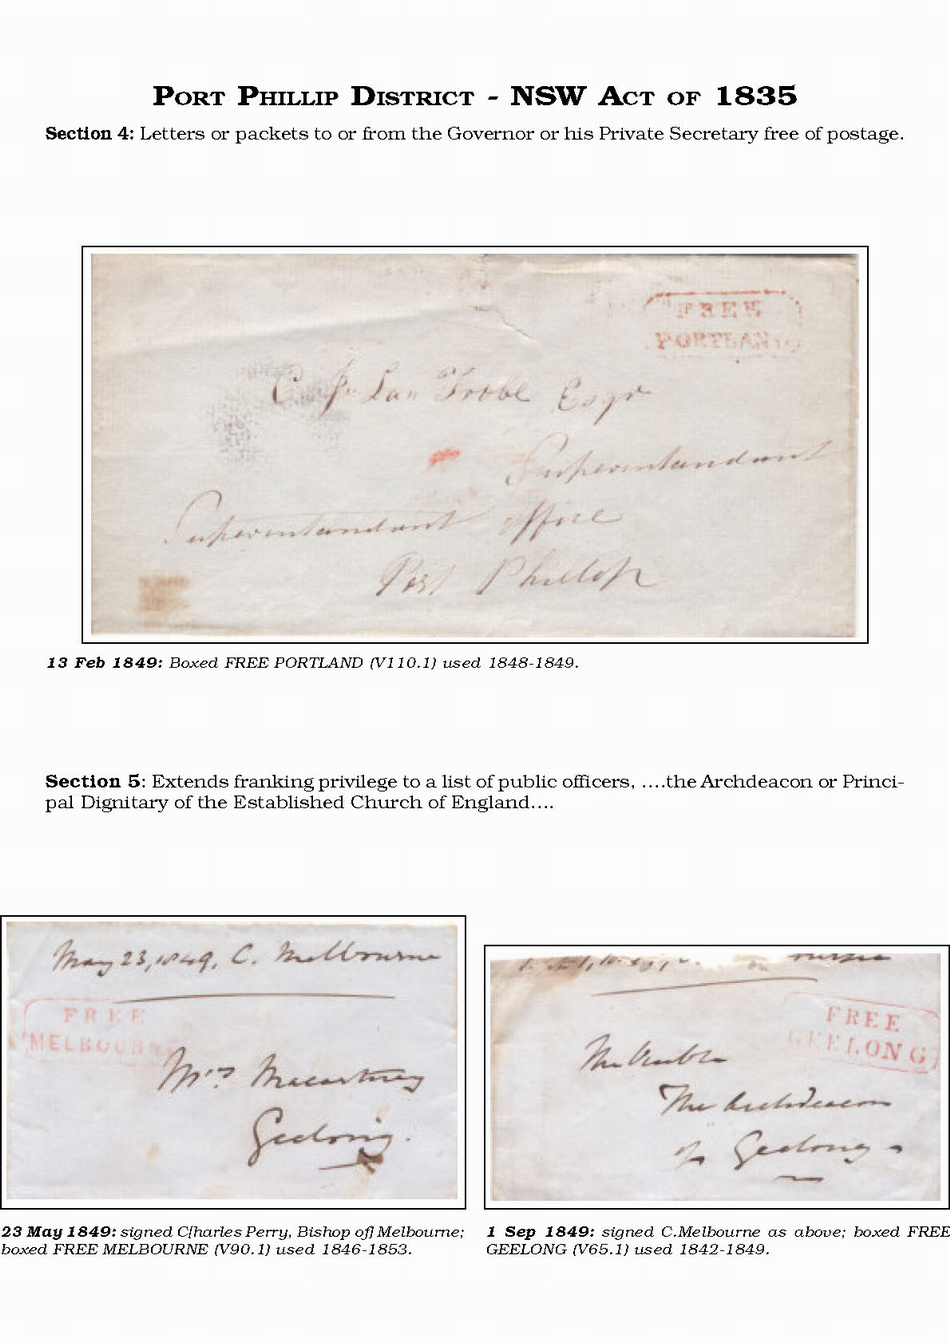 PORT PHILLIP DISTRICT - NSW ACT OF 1835
Section 4: Letters or packets to or from the Governor or his Private Secretary free of postage.
FREE
PORTLAND
C. J. La Trobe Esqr
Superintendant
Superintendant Office
Port Phillip
13 Feb 1849: Boxed FREE PORTLAND (V110.1) used 1848-1849.
Section 5: Extends franking privilege to a list of public officers, ....the Archdeacon or Princi-
pal Dignitary of the Established Church of England....
May 23, 1849, C. Melbourne
FREE
MELBOURNE
Mrs Macartney
Geelong.
FREE
GEELONG
The Archdeacon
of Geelong
23 May 1849: signed C[harles Perry, Bishop of] Melbourne;
boxed FREE MELBOURNE (V90.1) used 1846-1853.
1 Sep 1849: signed C.Melbourne as above; boxed FREE
GEELONG (V65.1) used 1842-1849.